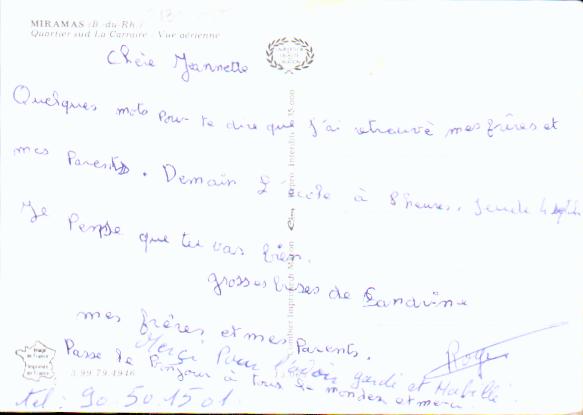 MIRAMAS (B.-du-Rh.)
Quartier sud La Carraire - Vue aérienne
Chère Jeannette
Quelques mots pour te dire que j'ai retrouvé mes frères et
mes Parents. Demain l'école à 8 heures. Jeudi 4
Je Pense que tu vas bien.
grosses bises de Sandrine
mes frères et mes Parents.
Merci Pour garde et
Passe le Bonjour à tous le mondes et merci
Roger
Image de France
Imprimée en France
3.99.79.1946
tel : 90.50.15.01.